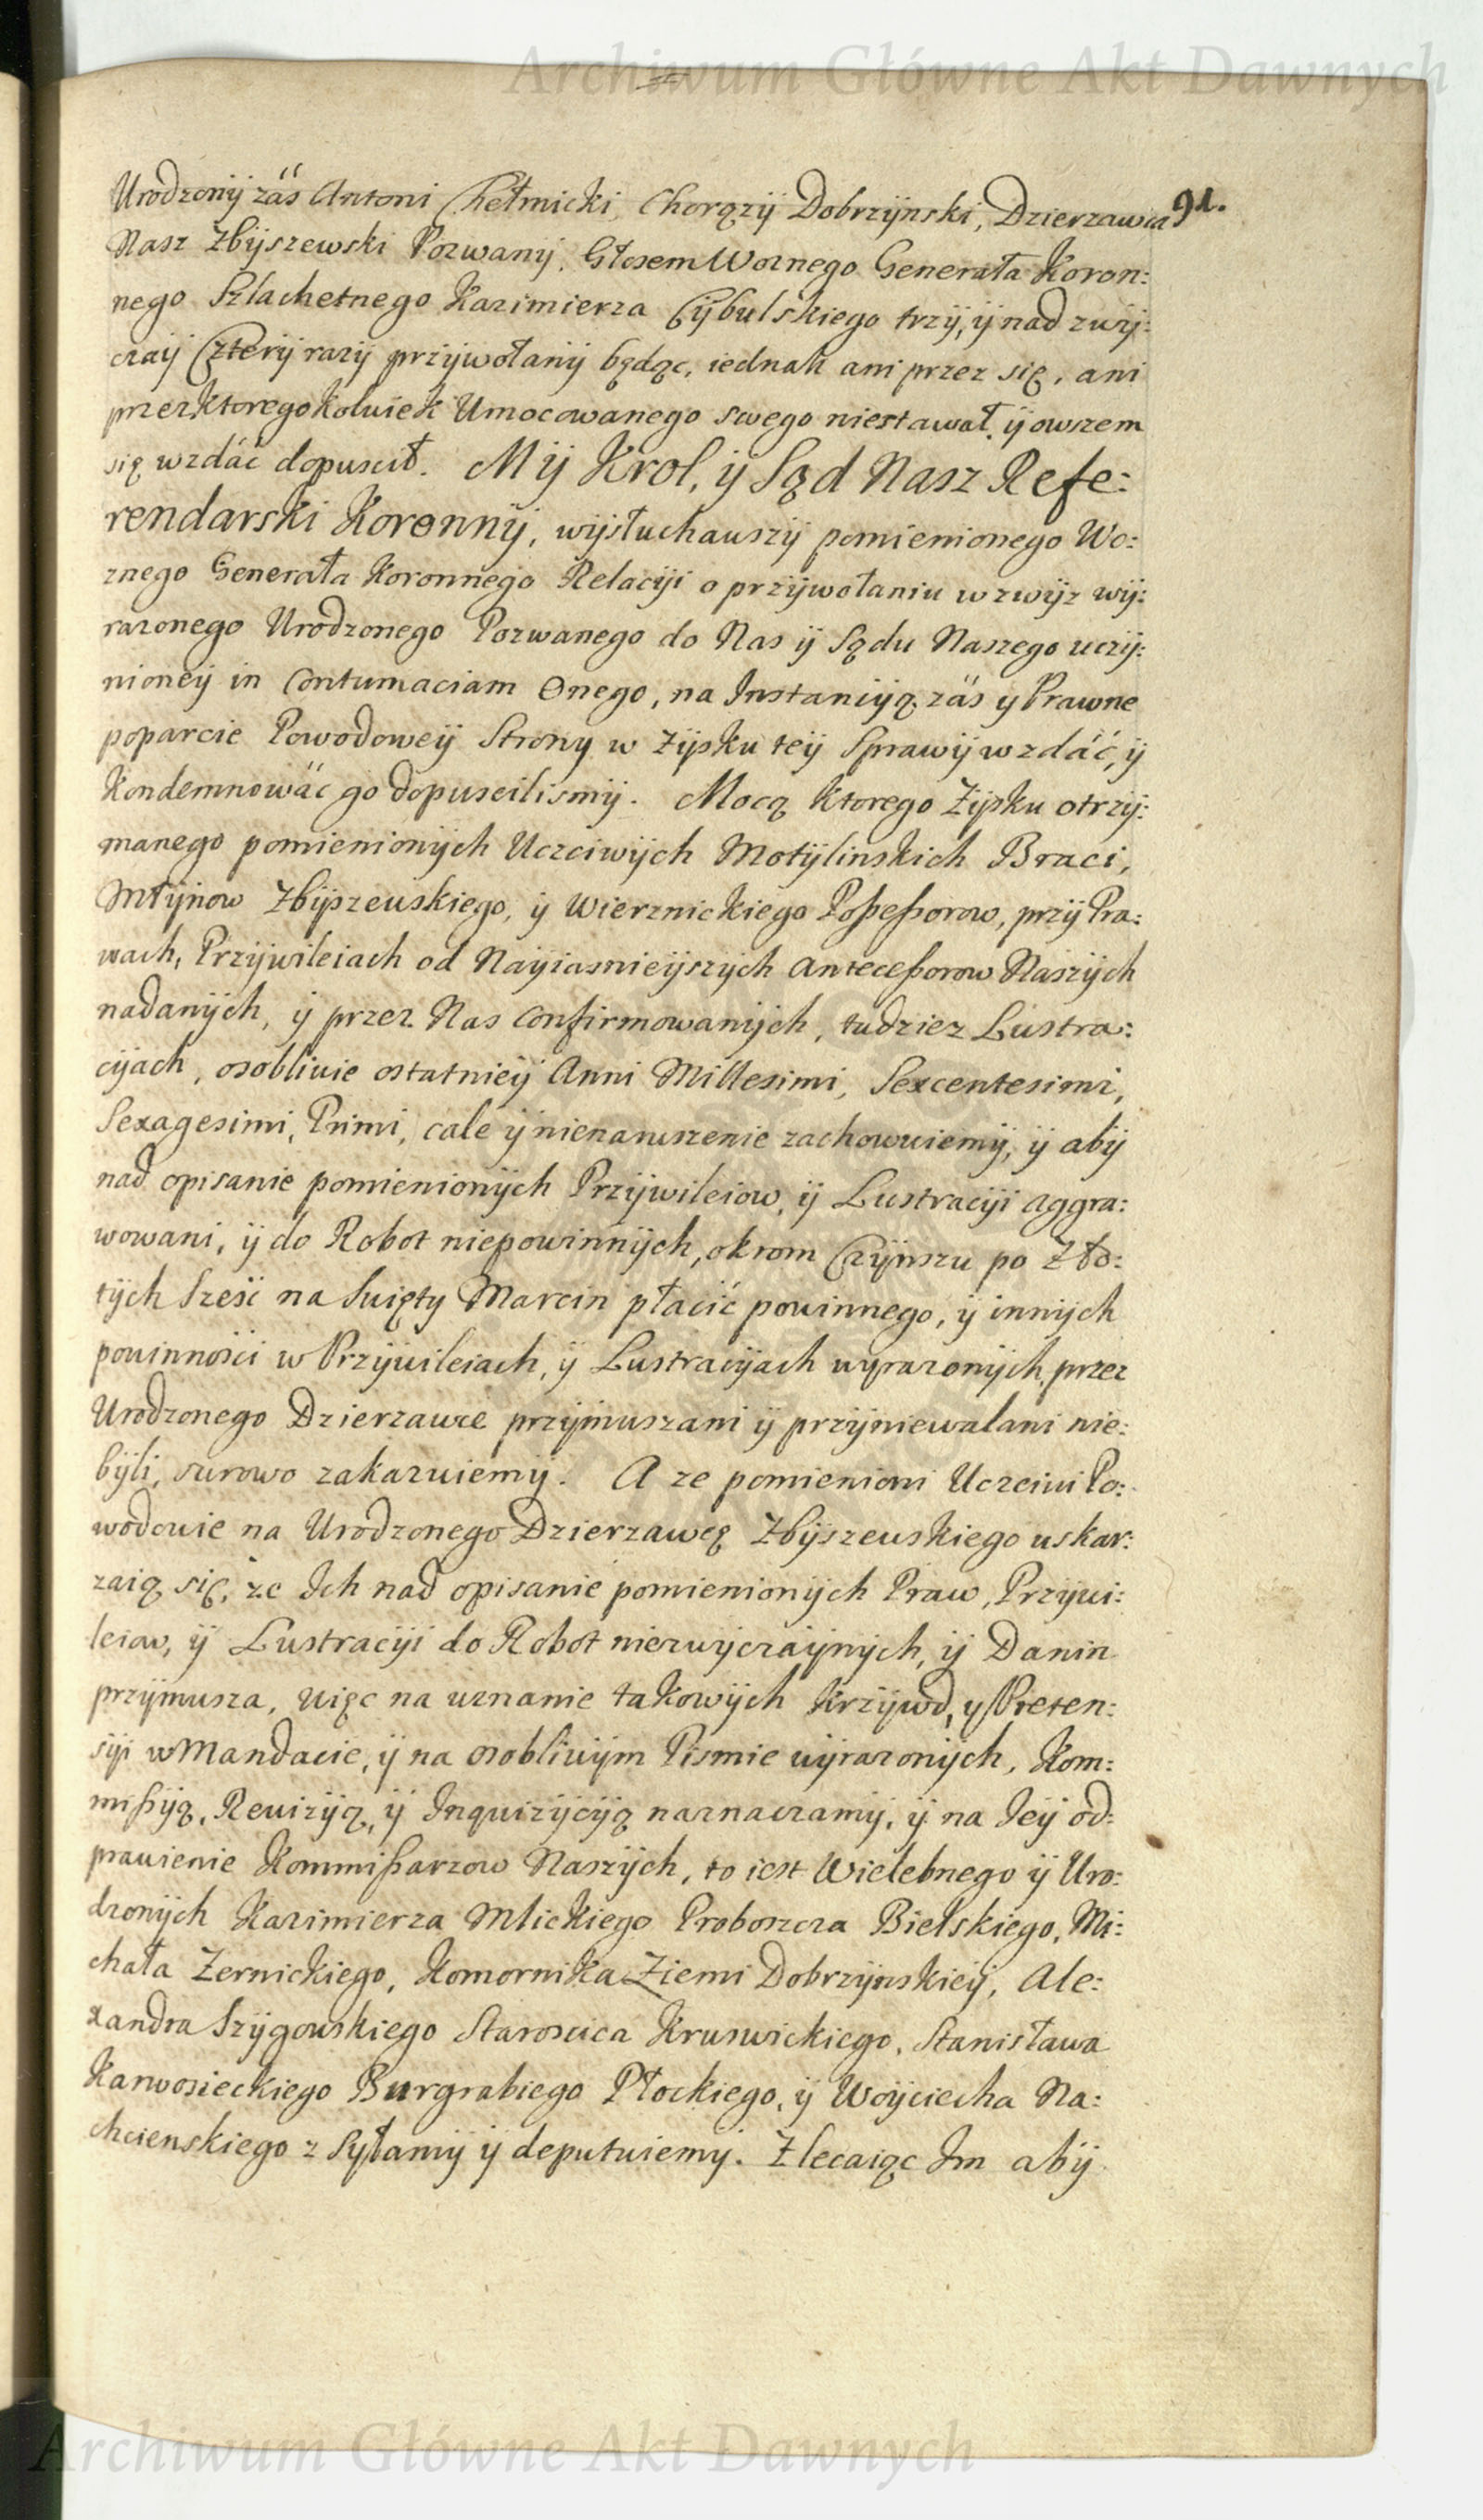 Archiwum Główne Akt Dawnych
91.
Urodzonÿ zás Antoni Chełmicki, Chorązÿ Dobrzÿnski, Dzierzawca
Nasz Zbÿszewski Pozwanÿ. Głosem Woznego Generała Koron:
nego Szlachetnego Kazimierza Cÿbulskiego trzÿ, ÿ nad zwÿ:
czaÿ Czterÿ razÿ przÿwołanÿ będąc, iednak ani przez się, ani
przez ktoregokolwiek Umocowanego swego niestawał, ÿ owszem
się wzdáć dopuscił. Mÿ Krol, ÿ Sąd Nasz Refe:
rendarski Koronnÿ, wÿsłuchawszÿ pomienionego Wo:
znego Generała Koronnego Relacÿi o przÿwołaniu wzwÿz wÿ:
razonego Urodzonego Pozwanego do Nas ÿ Sądu Naszego uczÿ:
nioneÿ in Contumaciam Onego, na Instancÿą zás y Prawne
poparcie Powodoweÿ Strony w Zÿsku teÿ Sprawÿ wzdáć, ÿ
Kondemnowáć go dopuscilismÿ. Mocą ktorego Zÿsku otrzÿ:
manego pomienionÿch Uczciwÿch Motÿlinskich Braci,
Młÿnow Zbÿszewskiego, ÿ Wierznickiego Poßeßorow, przÿ Pra:
wach, Przÿwileiach od Naÿiasnieÿszÿch Anteceßorow Naszÿch
nadanÿch, ÿ przez Nas Confirmowanÿch, tudziez Lustra:
cÿach, osobliwie ostatnieÿ Anni Millesimi, Sexcentesimi,
Sexagesimi, Primi, cale ÿ nienaruszenie zachowuiemÿ, ÿ abÿ
nad opisanie pomienionÿch Przÿwileiow, ÿ Lustracÿi aggra:
wowani, ÿ do Robot niepowinnÿch, okrom Czÿnszu po Zło:
tÿch Szesć na Swięty Marcin płacić powinnego, ÿ innÿch
powinnosci w Przÿwileiach, ÿ Lustracÿach wyrazonÿch, przez
Urodzonego Dzierzawce przÿmuszani ÿ przÿniewalani nie:
bÿli, surowo zakazuiemÿ. A ze pomienioni Uczciwi Po:
wodowie na Urodzonego Dzierzawcę Zbÿszewskiego uskar:
zaią się, że Ich nad opisanie pomienionÿch Praw, Przÿwi:
leiow, ÿ Lustracÿi do Robot niezwÿczaÿnÿch, ÿ Danin
przÿmusza, więc na uznanie takowÿch Krzÿwd, y Preten:
sÿi w Mandacie, ÿ na osobliwÿm Pismie wÿrazonÿch, Kom:
mißÿą, Rewizÿą, ÿ Inquizÿcÿą naznaczamÿ, ÿ na Ieÿ od:
prawienie Kommißarzow Naszÿch, to iest Wielebnego ÿ Uro:
dzonÿch Kazimierza Mlickiego Proboszcza Bielskiego, Mi:
chała Zernickiego, Komornika Ziemi Dobrzÿnskieÿ, Ale:
xandra Szÿgowskiego Staroscica Kruswickiego, Stanisława
Karwosieckiego Burgrabiego Płockiego, ÿ Woÿciecha Na:
chcienskiego zsÿłamÿ ÿ deputuiemÿ. Zlecaiąc Im abÿ
Archiwum Główne Akt Dawnych